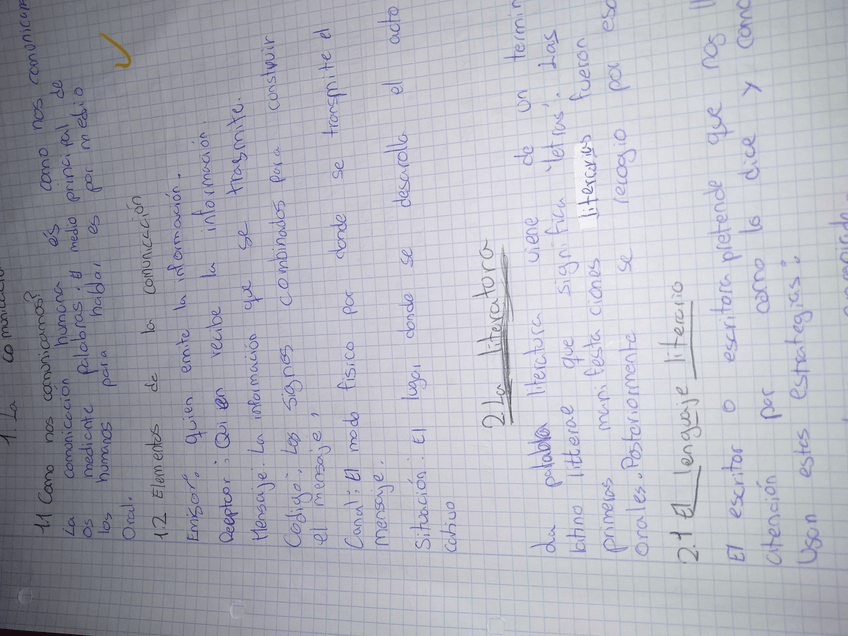 1. La comunicación
1.1 Como nos comunicamos?
La comunicación humana es como nos comunicam
os mediante palabras. El medio principal de
los humanos para hablar es por medio
Oral.
1.2 Elementos de la comunicación
Emisor: quien emite la información.
Receptor: Quien recibe la información.
Mensaje: La información que se trasmite.
Código: Los signos combinados para construir
el mensaje,
Canal: El modo físico por donde se transmite el
mensaje.
Situación: El lugar donde se desarolla el acto
cativo
2 La literatura
La palabra literatura viene de un termin
latino litterae que significa 'letras'. Las
primeras manifestaciones literarias fueron
Orales. Posteriormente se recogio por esc
2.1 El lenguaje literario
El escritor o escritora pretende que nos ll
atención por como lo dice y como
Usan estas estrategias: